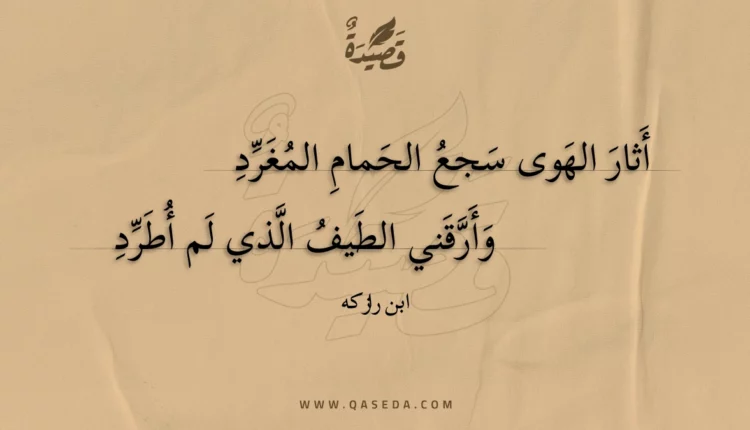 قَصِيْدَةٌ
أَثارَ الهَوى سَجعُ الحَمامِ المُغَرِّدِ
وَأَرَّقَني الطَيفُ الَّذي لَم أُطَرِّدِ
ابن رازكه
WWW.QASEDA.COM